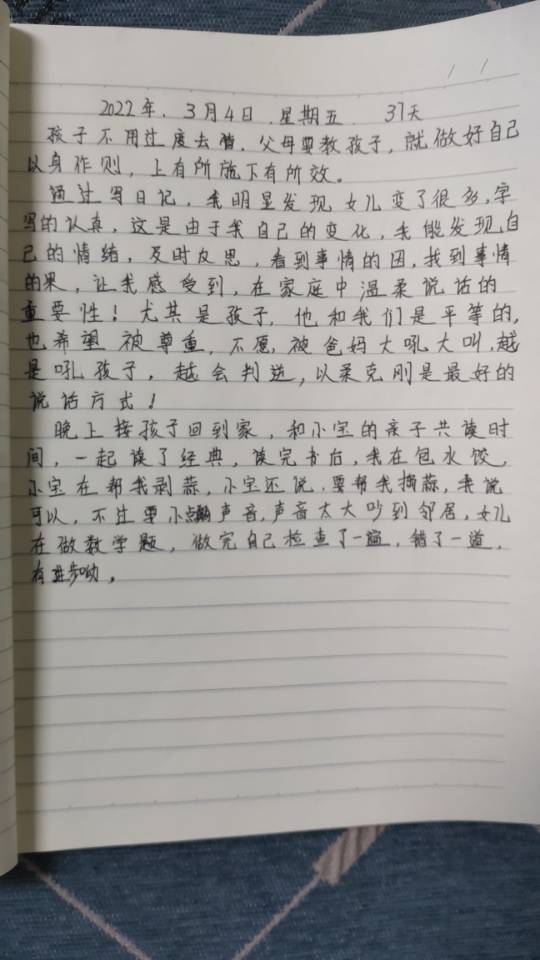 2022年.3月4日.星期五.37天
孩子不用过度去管,父母要教孩子,就做好自己
以身作则,上有所施下有所效。
通过写日记,我明显发现女儿变了很多,字
写的认真,这是由于我自己的变化,我能发现自
己的情绪,及时反思,看到事情的因,找到事情
的果,让我感受到,在家庭中温柔说话的
重要性!尤其是孩子,他和我们是平等的,
也希望被尊重,不愿,被爸妈大吼大叫,越
是吼孩子,越会判逆,以柔克刚是最好的
说话方式!
晚上接孩子回到家,和小宝的亲子共读时
间,一起读了经典,读完书后,我在包水饺,
小宝在帮我剥蒜,小宝还说,要帮我捣蒜,我说
可以,不过要小点声音,声音太大吵到邻居,女儿
在做数学题,做完自己检查了一遍,错了一道,
有进步呦。